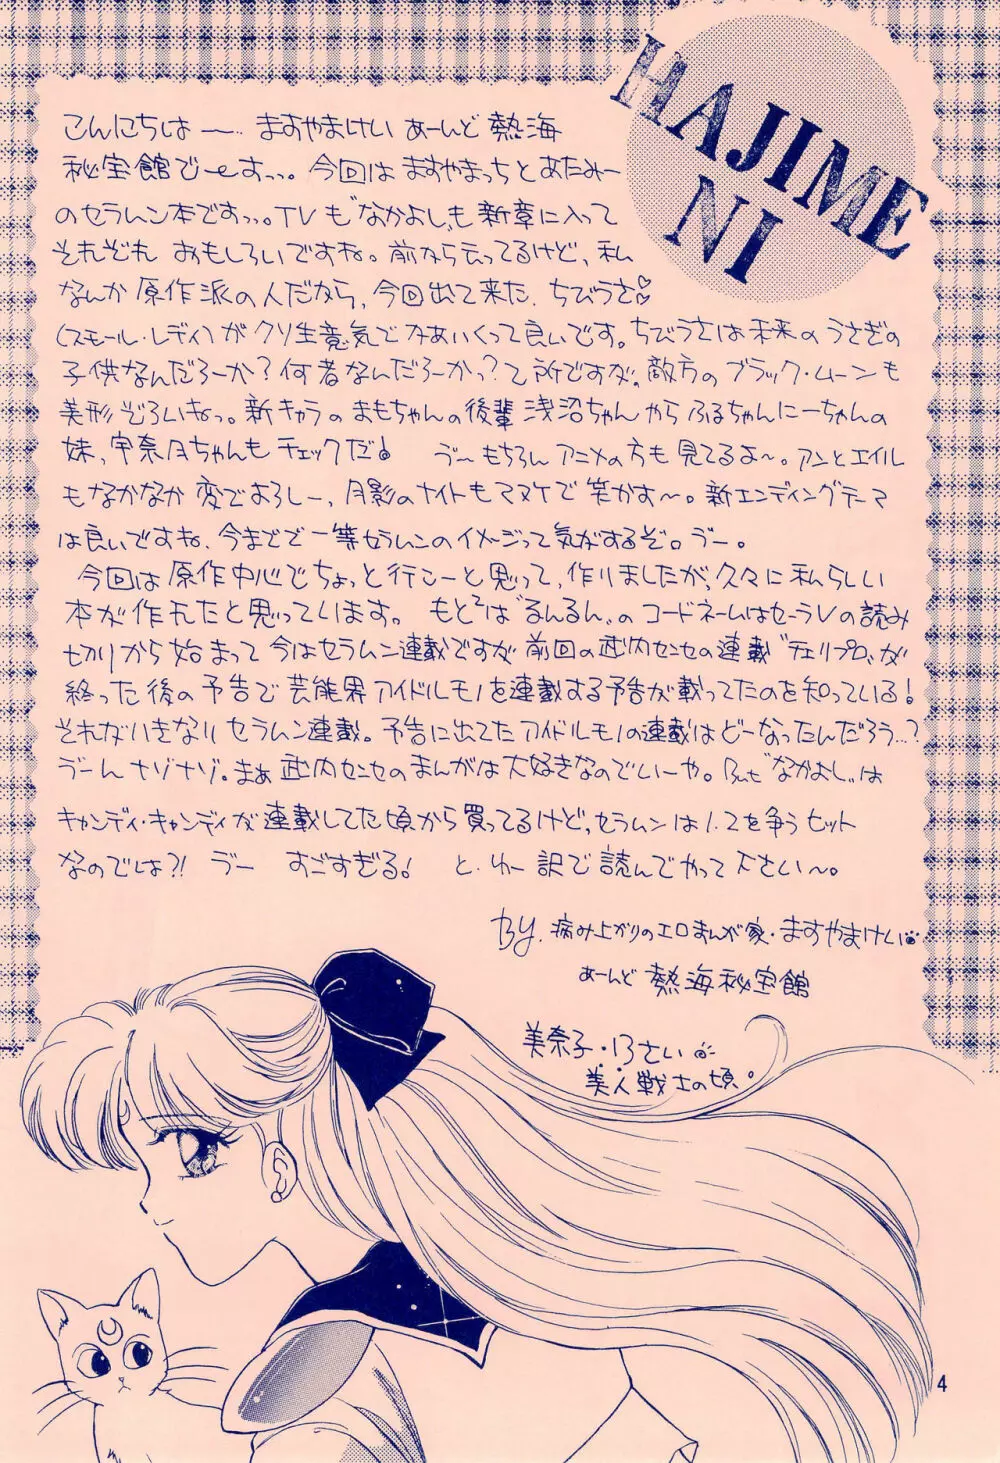 HAJIME
NI
こんにちは〜… ますやまけい あーんど 熱海
秘宝館でーすっっ。今回は ますやまっちと あたみー
のセラムン本ですっっ。TVも"なかよし"も新章に入って
それぞれ おもしろいですね。前から云ってるけど、私
なんか 原作派の人だから、今回出て来た、ちびうさ♡
(スモール・レディ)が クソ生意気で かあいくって良いです。ちびうさは未来の うさぎの
子供なんだろーか?何者なんだろーかっ?て所ですが。敵方の ブラック・ムーンも
美形ぞろいねっ。新キャラのまもちゃんの後輩 浅沼ちゃん やら ふるちゃんにーちゃんの
妹、宇奈月ちゃんも チェックだ! ゔー もちろん アニメの方も 見てるよ〜。アンとエイル
もなかなか 変でよろしー、月影のナイトもマヌケで 笑かす〜。新エンディングテーマ
は良いですね、今までで一等セラムンのイメージって気がするぞ。ゔー。
今回は 原作中心でちょっと行こーと思って、作りましたが、久々に私らしい
本が作れたと思っています。もとそは"るんるん"の コードネームはセーラVの読み
切りから始まって 今はセラムン連載ですが 前回の武内センセの連載"チェリプロ"が
終った後の予告で芸能界アイドルモノを連載する予告が載ってたのを知っている!
それがいきなり セラムン連載。予告に出てたアイドルモノの連載はどーなったんだろう…?
ゔーん ナゾナゾ。まぁ 武内センセのまんがは大好きなのでいーや。But"なかよし"は
キャンディ・キャンディが連載してた頃から買ってるけど、セラムンは1.2を争うヒット
なのでは?! ゔー すごすぎる! と、ゆー訳で読んでやって下さい〜。
By. 病み上がりのエロまんが家・ますやまけい
あーんど 熱海秘宝館
美奈子・13さい
美人戦士の頃。
4